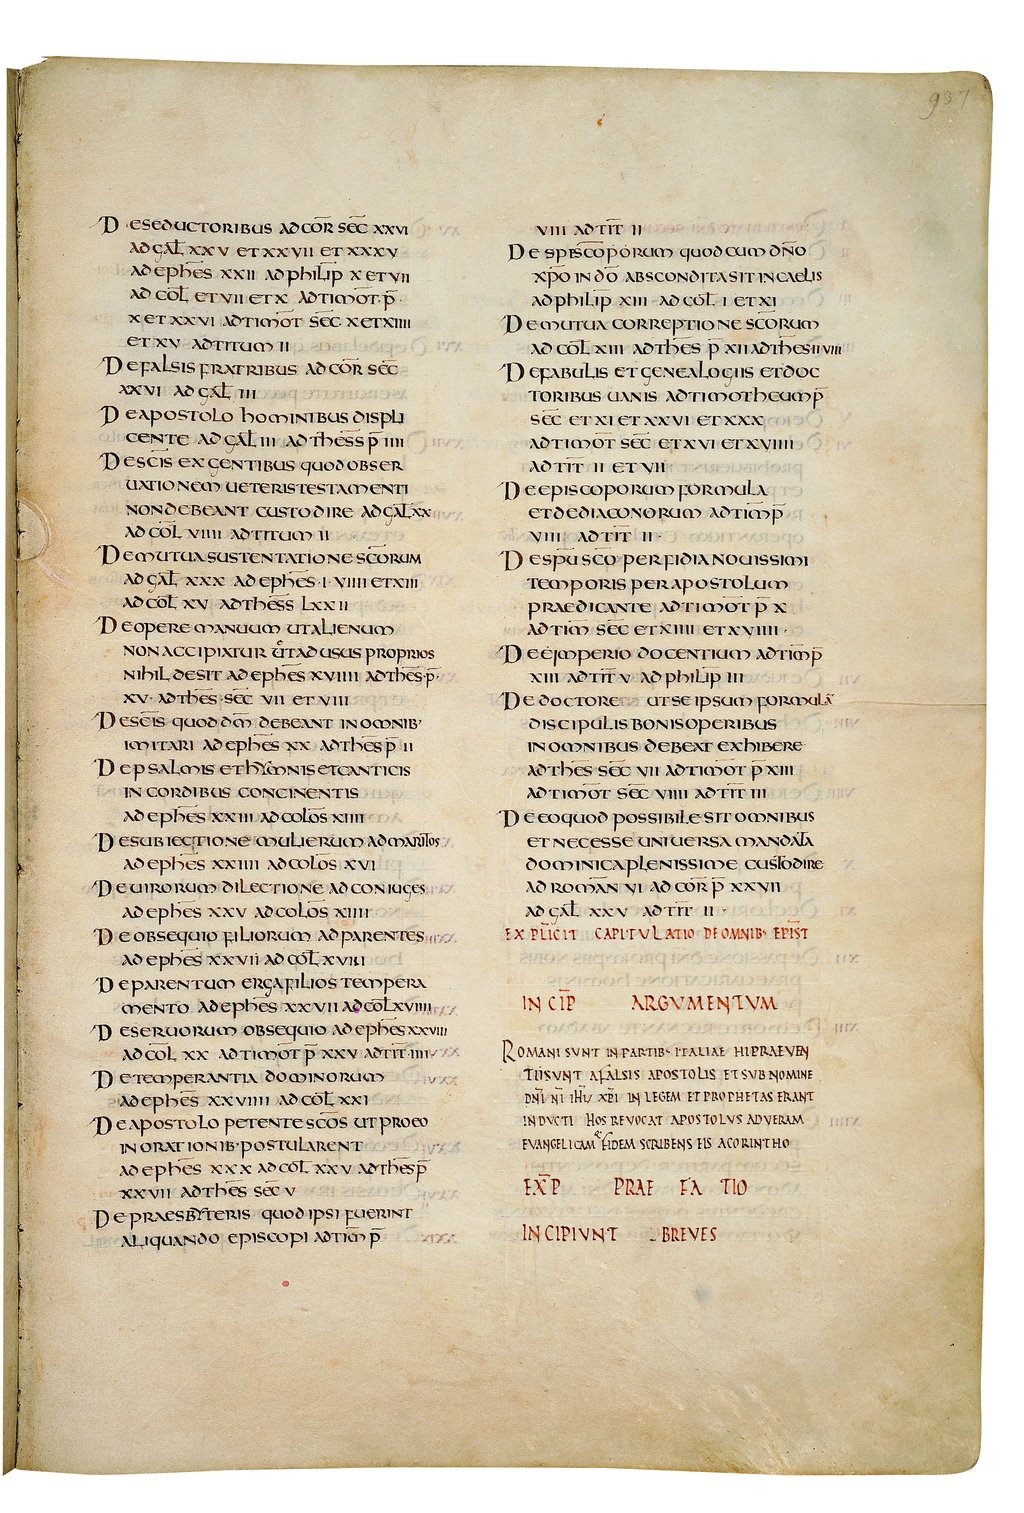 937
DESEDUCTORIBUS AD COR̅ SEC̅ XXVI
AD GAL̅ XXV ET XXVII ET XXXV
AD EPHES̅ XXII AD PHILIP̅ X ET VII
AD COL̅ ET VII ET X AD TIMOT̅ P̅·
X ET XXVI AD TIMOT̅ SEC̅ X ET XIIII
ET XV AD TITUM II
DE FALSIS FRATRIBUS AD COR̅ SEC̅
XXVI AD GAL̅ III
DE APOSTOLO HOMINIBUS DISPLI
CENTE AD GAL̅ III AD THESS̅ P̅ IIII
DE SCIS̅ EX GENTIBUS QUOD OBSER
UATIONEM UETERIS TESTAMENTI
NON DEBEANT CUSTODIRE AD GAL̅ XX
AD COL̅ VIIII AD TITUM II
DE MUTUA SUSTENTATIONE SCO̅RUM
AD GAL̅ XXX AD EPHES̅ · I · VIIII ET XIII
AD COL̅ XV AD THESS̅ LXXII
DE OPERE MANUUM UT ALIENUM
NON ACCIPIATUR UT AD USUS PROPRIOS
NIHIL DESIT AD EPHES̅ XVIIII AD THES̅·P̅·
XV· AD THES̅·SEC̅ VII ET VIII
DE SCIS̅ QUOD DM̅ DEBEANT IN OMNIB·
IMITARI AD EPHES̅ XX AD THES̅ P̅ II
DE PSALMIS ET HYMNIS ET CANTICIS
IN CORDIBUS CONCINENTIS
AD EPHES̅ XXIII AD COLOS̅ XIIII
DE SUBIECTIONE MULIERUM AD MARITOS
AD EPHES̅ XXIIII AD COLOS̅ XVI
DE UIRORUM DILECTIONE AD CONIUGES
AD EPHES̅ XXV AD COLOS̅ XIIII
DE OBSEQUIO FILIORUM AD PARENTES
AD EPHES̅ XXVII AD COL̅ XVIII
DE PARENTUM ERGA FILIOS TEMPERA
MENTO AD EPHES̅ XXVII AD COL̅ XVIIII
DE SERUORUM OBSEQUIO AD EPHES̅ XXVIII
AD COL̅ XX AD TIMOT̅ P̅ XXV AD TIT̅ IIII
DE TEMPERANTIA DOMINORUM
AD EPHES̅ XXVIIII AD COL̅ XXI
DE APOSTOLO PETENTE SCO̅S UT PRO EO
IN ORATIONIB· POSTULARENT
AD EPHES̅ XXX AD COL̅ XXV AD THES̅ P̅
XXVII AD THES̅ SEC̅ V
DE PRAESBYTERIS QUOD IPSI FUERINT
ALIQUANDO EPISCOPI AD TIM̅ P̅
VIII AD TIT̅ II
DE SPIS̅ CO̅PORUM QUOD CUM DN̅O
XP̅O IN DO̅ ABSCONDITA SIT IN CAELIS
AD PHILIP̅ XIII AD COL̅ I ET XI
DE MUTUA CORREPTIONE SCO̅RUM
AD COL̅ XIII AD THES̅ P̅ XII AD THES̅ II VIII
DE FABULIS ET GENEALOGIIS ET DOC
TORIBUS UANIS AD TIMOTHEUM P̅
SEC̅ ET XI ET XXVI ET XXX
AD TIMOT̅ SEC̅ ET XVI ET XVIIII
AD TIT̅ II ET VII
DE EPISCOPORUM FORMULA
ET DE DIACONORUM AD TIM̅ P̅
VIII AD TIT̅ II ·
DE SPU̅ SCO̅ PERFIDIA NOUISSIMI
TEMPORIS PER APOSTOLUM
PRAEDICANTE AD TIMOT̅ P̅ X
AD TIM̅ SEC̅ ET XIIII ET XVIIII ·
DE EIMPERIO DOCENTIUM AD TIM̅ P̅
XIII AD TIT̅ V AD PHILIP̅ III
DE DOCTORE UT SE IPSUM FORMULA̅
DISCIPULIS BONIS OPERIBUS
IN OMNIBUS DEBEAT EXHIBERE
AD THES̅ SEC̅ VII AD TIMOT̅ P̅ XIII
AD TIMOT̅ SEC̅ VIIII AD TIT̅ III
DE EO QUOD POSSIBILE SIT OMNIBUS
ET NECESSE UNIUERSA MANDATA
DOMINICA PLENISSIME CUSTODIRE
AD ROMAN̅ VI AD COR̅ P̅ XXVII
AD GAL̅ XXV AD TIT̅ II ·
EXPLICIT CAPITULATIO DE OMNIB· EPIST̅
INCIP̅ ARGVMENTVM
ROMANI SVNT IN PARTIB· ITALIAE HI PRAEVEN
TI SVNT A FALSIS APOSTOLIS ET SVB NOMINE
DN̅I N̅I IH̅V XP̅I IN LEGEM ET PROPHETAS ERANT
INDVCTI HOS REVOCAT APOSTOLVS AD VERAM
EVANGELICAM FIDEM SCRIBENS EIS A CORINTHO
EXP̅ PRAEFATIO
INCIPIVNT BREVES